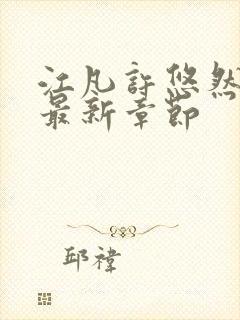 江凡許悠然
最新章節
邱禕